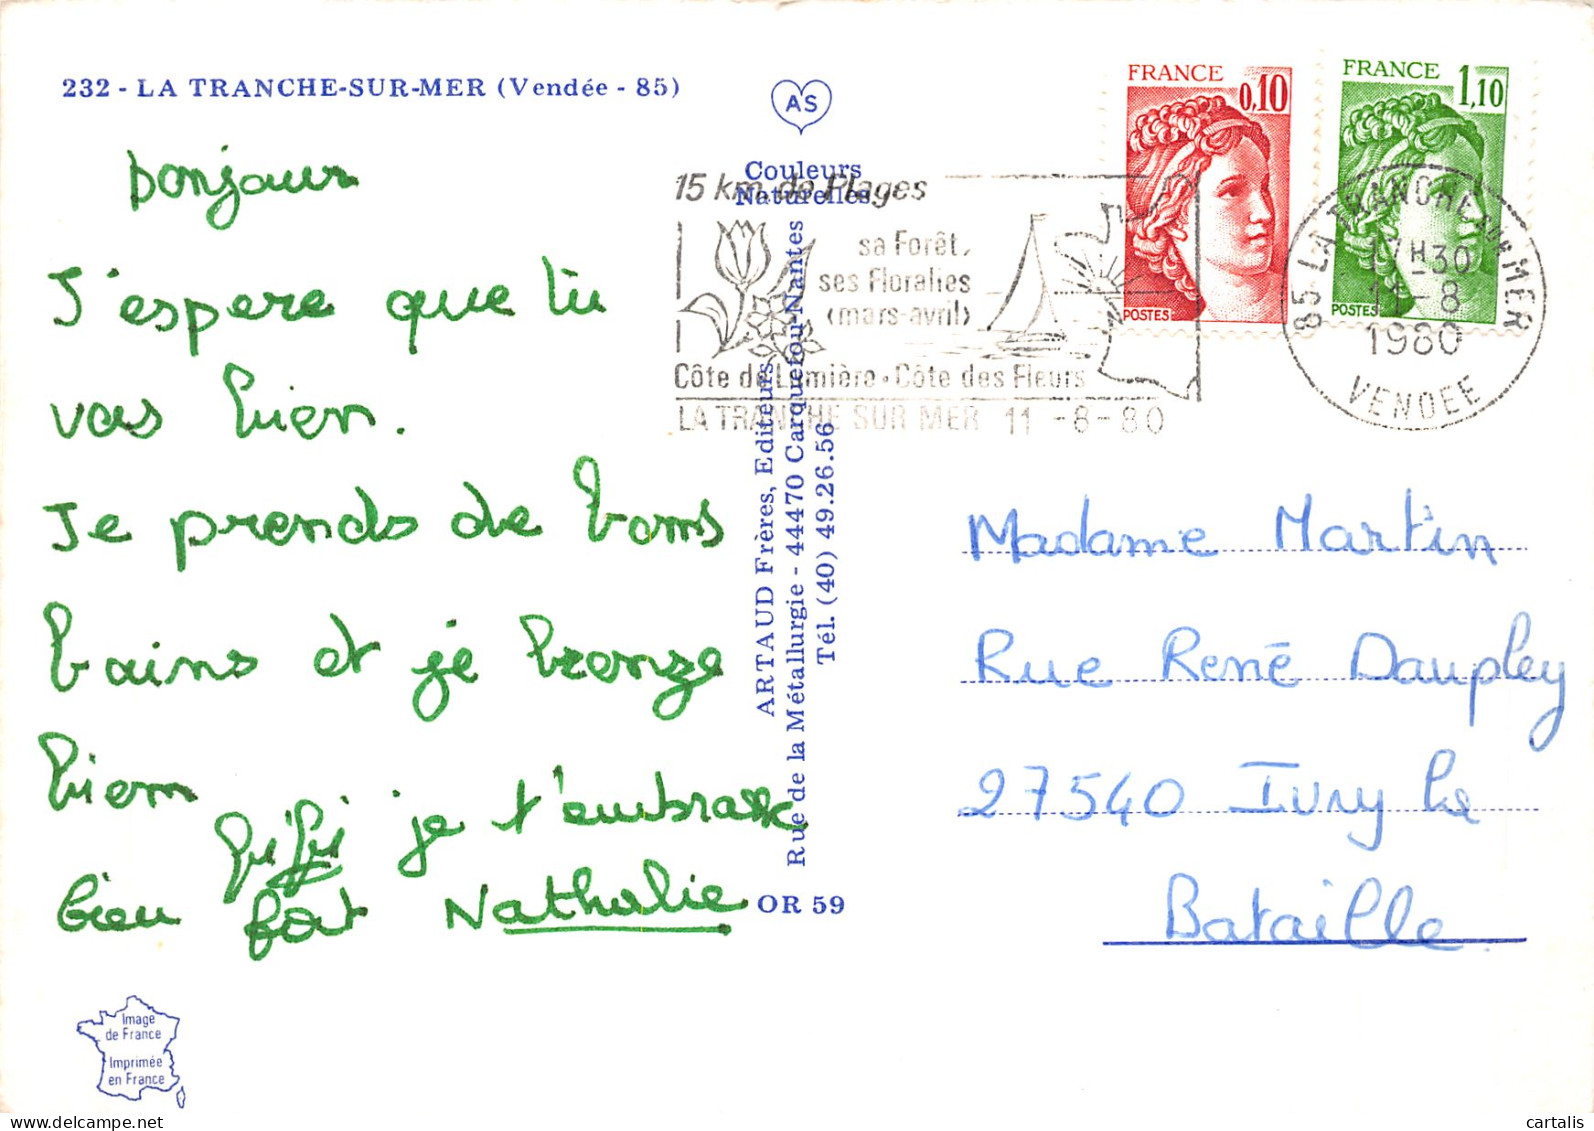 232 - LA TRANCHE-SUR-MER (Vendée - 85)
AS
Couleurs
Naturelles
bonjour
J'espere que tu
vas bien.
Je prends de bons
bains et je bronze
bien
fifi je t'embrasse
bien fort Nathalie
ARTAUD Frères, Editeurs
Rue de la Métallurgie - 44470 Carquefou-Nantes
Tél. (40) 49.26.56
OR 59
Image
de France
Imprimée
en France
15 km de Plages
sa Forêt,
ses Floralies
(mars-avril)
Côte de Lumière • Côte des Fleurs
LA TRANCHE SUR MER 11 -8-80
FRANCE
0,10
POSTES
FRANCE
1,10
POSTES
85 LA TRANCHE SUR MER
17H30
11-8
1980
VENDEE
Madame Martin
Rue René Daupley
27540 Ivry la
Bataille
cartalis
www.delcampe.net